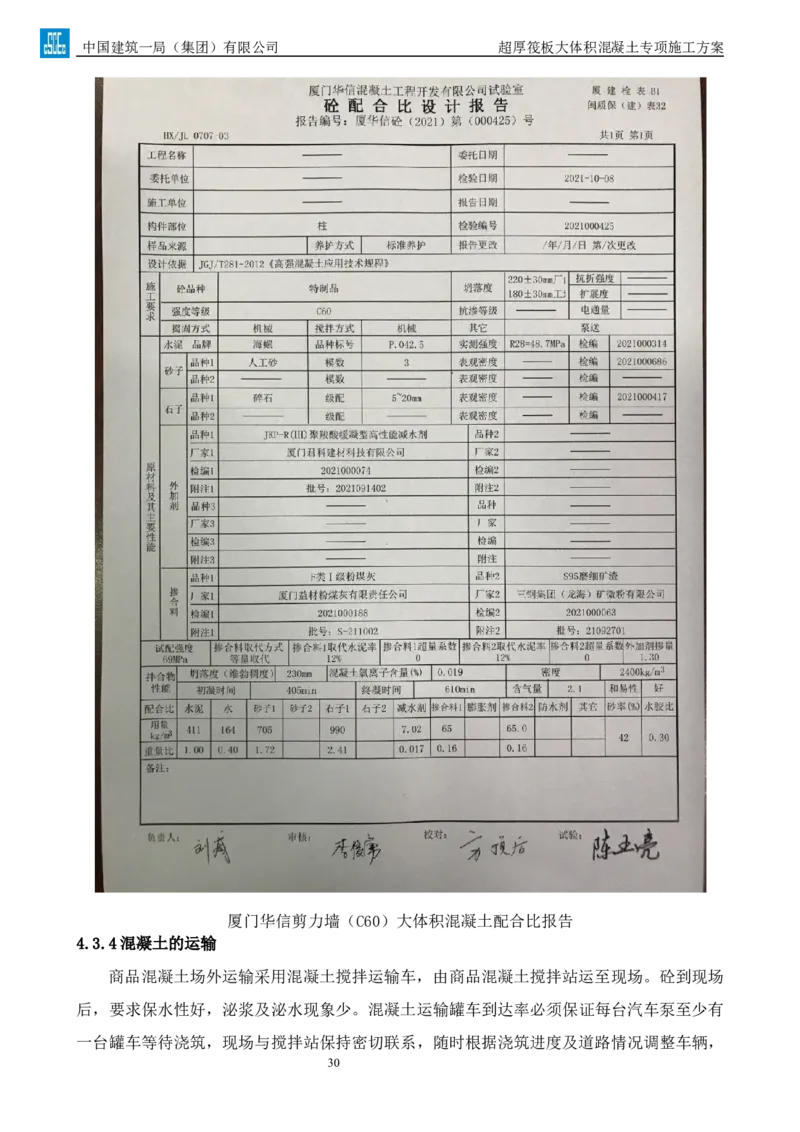 中国建筑一局（集团）有限公司 超厚筏板大体积混凝土专项施工方案
厦门华信混凝土工程开发有限公司试验室 厦 建 检 表 B1
砼 配 合 比 设 计 报 告 闽质保（建）表32
报告编号：厦华信砼（2021）第（000425）号
HX/JL 0707-03 共1页 第1页
工程名称 —— 委托日期 ——
委托单位 —— 检验日期 2021-10-08
施工单位 —— 报告日期 ——
构件部位 柱 检验编号 2021000425
样品来源 养护方式 标准养护 报告更改 /年/月/日 第/次更改
设计依据 JGJ/T281-2012《高强混凝土应用技术规程》
施工要求 砼品种 特制品 坍落度 220±30mm 180±30mm 抗折强度 —— 扩展度 ——
强度等级 C60 抗渗等级 —— 电通量 ——
捣固方式 机械 搅拌方式 机械 其它 泵送
原材料及其主要性能
水泥 品牌 海螺 品种标号 P.O42.5 实测强度 R28=48.7MPa 检编 2021000314
砂子 品种1 人工砂 模数 3 表观密度 —— 检编 2021000686
品种2 —— 模数 —— 表观密度 —— 检编 ——
石子 品种1 碎石 级配 5~20mm 表观密度 —— 检编 2021000417
品种2 —— 级配 —— 表观密度 —— 检编 ——
外加剂 品种1 JKP-R(III)聚羧酸缓凝型高性能减水剂 品种2 ——
厂家1 厦门君科建材科技有限公司 厂家2 ——
检编1 2021000074 检编2 ——
附注1 批号：2021091402 附注2 ——
品种3 —— 品种 ——
厂家3 —— 厂家 ——
检编3 —— 检编 ——
附注3 —— 附注 ——
掺合料 品种1 F类Ⅰ级粉煤灰 品种2 S95磨细矿渣
厂家1 厦门益材粉煤灰有限责任公司 厂家2 三钢集团（龙海）矿微粉有限公司
检编1 2021000188 检编2 2021000063
附注1 批号：S-211002 附注2 批号：21092701
试配强度 掺合料取代方式 掺合料1取代水泥率 掺合料1超量系数 掺合料2取代水泥率 掺合料2超量系数 外加剂掺量
69MPa 等量取代 12% 0 12% 0 1.30
拌合物性能 坍落度（维勃稠度） 230mm 混凝土氯离子含量(%) 0.019 密度 2400kg/m³
初凝时间 405min 终凝时间 610min 含气量 2.1 和易性 好
配合比 水泥 水 砂子1 砂子2 石子1 石子2 减水剂 掺合料1 膨胀剂 掺合料2 防水剂 其它 砂率(%) 水胶比
用量kg/m³ 411 164 705 990 7.02 65 65.0 42 0.30
重量比 1.00 0.40 1.72 2.41 0.017 0.16 0.16
备注：
负责人： 审核： 校对： 试验： 陈玉亮
厦门华信剪力墙（C60）大体积混凝土配合比报告
4.3.4混凝土的运输
商品混凝土场外运输采用混凝土搅拌运输车，由商品混凝土搅拌站运至现场。砼到现场
后，要求保水性好，泌浆及泌水现象少。混凝土运输罐车到达率必须保证每台汽车泵至少有
一台罐车等待浇筑，现场与搅拌站保持密切联系，随时根据浇筑进度及道路情况调整车辆，
30